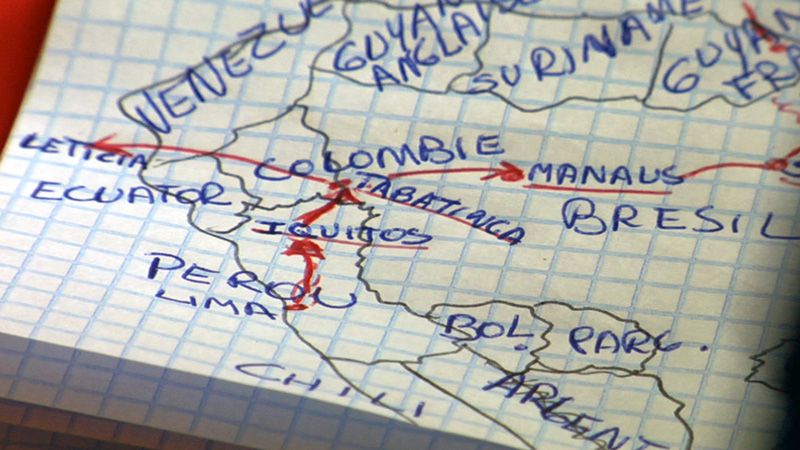 VENEZUE
GUYAN
ANGLA
SURINAME
GUYAN
FRA
LETICIA
COLOMBIE
MANAUS
ECUATOR
TABATINGA
BRESIL
IQUITOS
PEROU
LIMA
BOL.
PARG.
CHILI
ARGENT